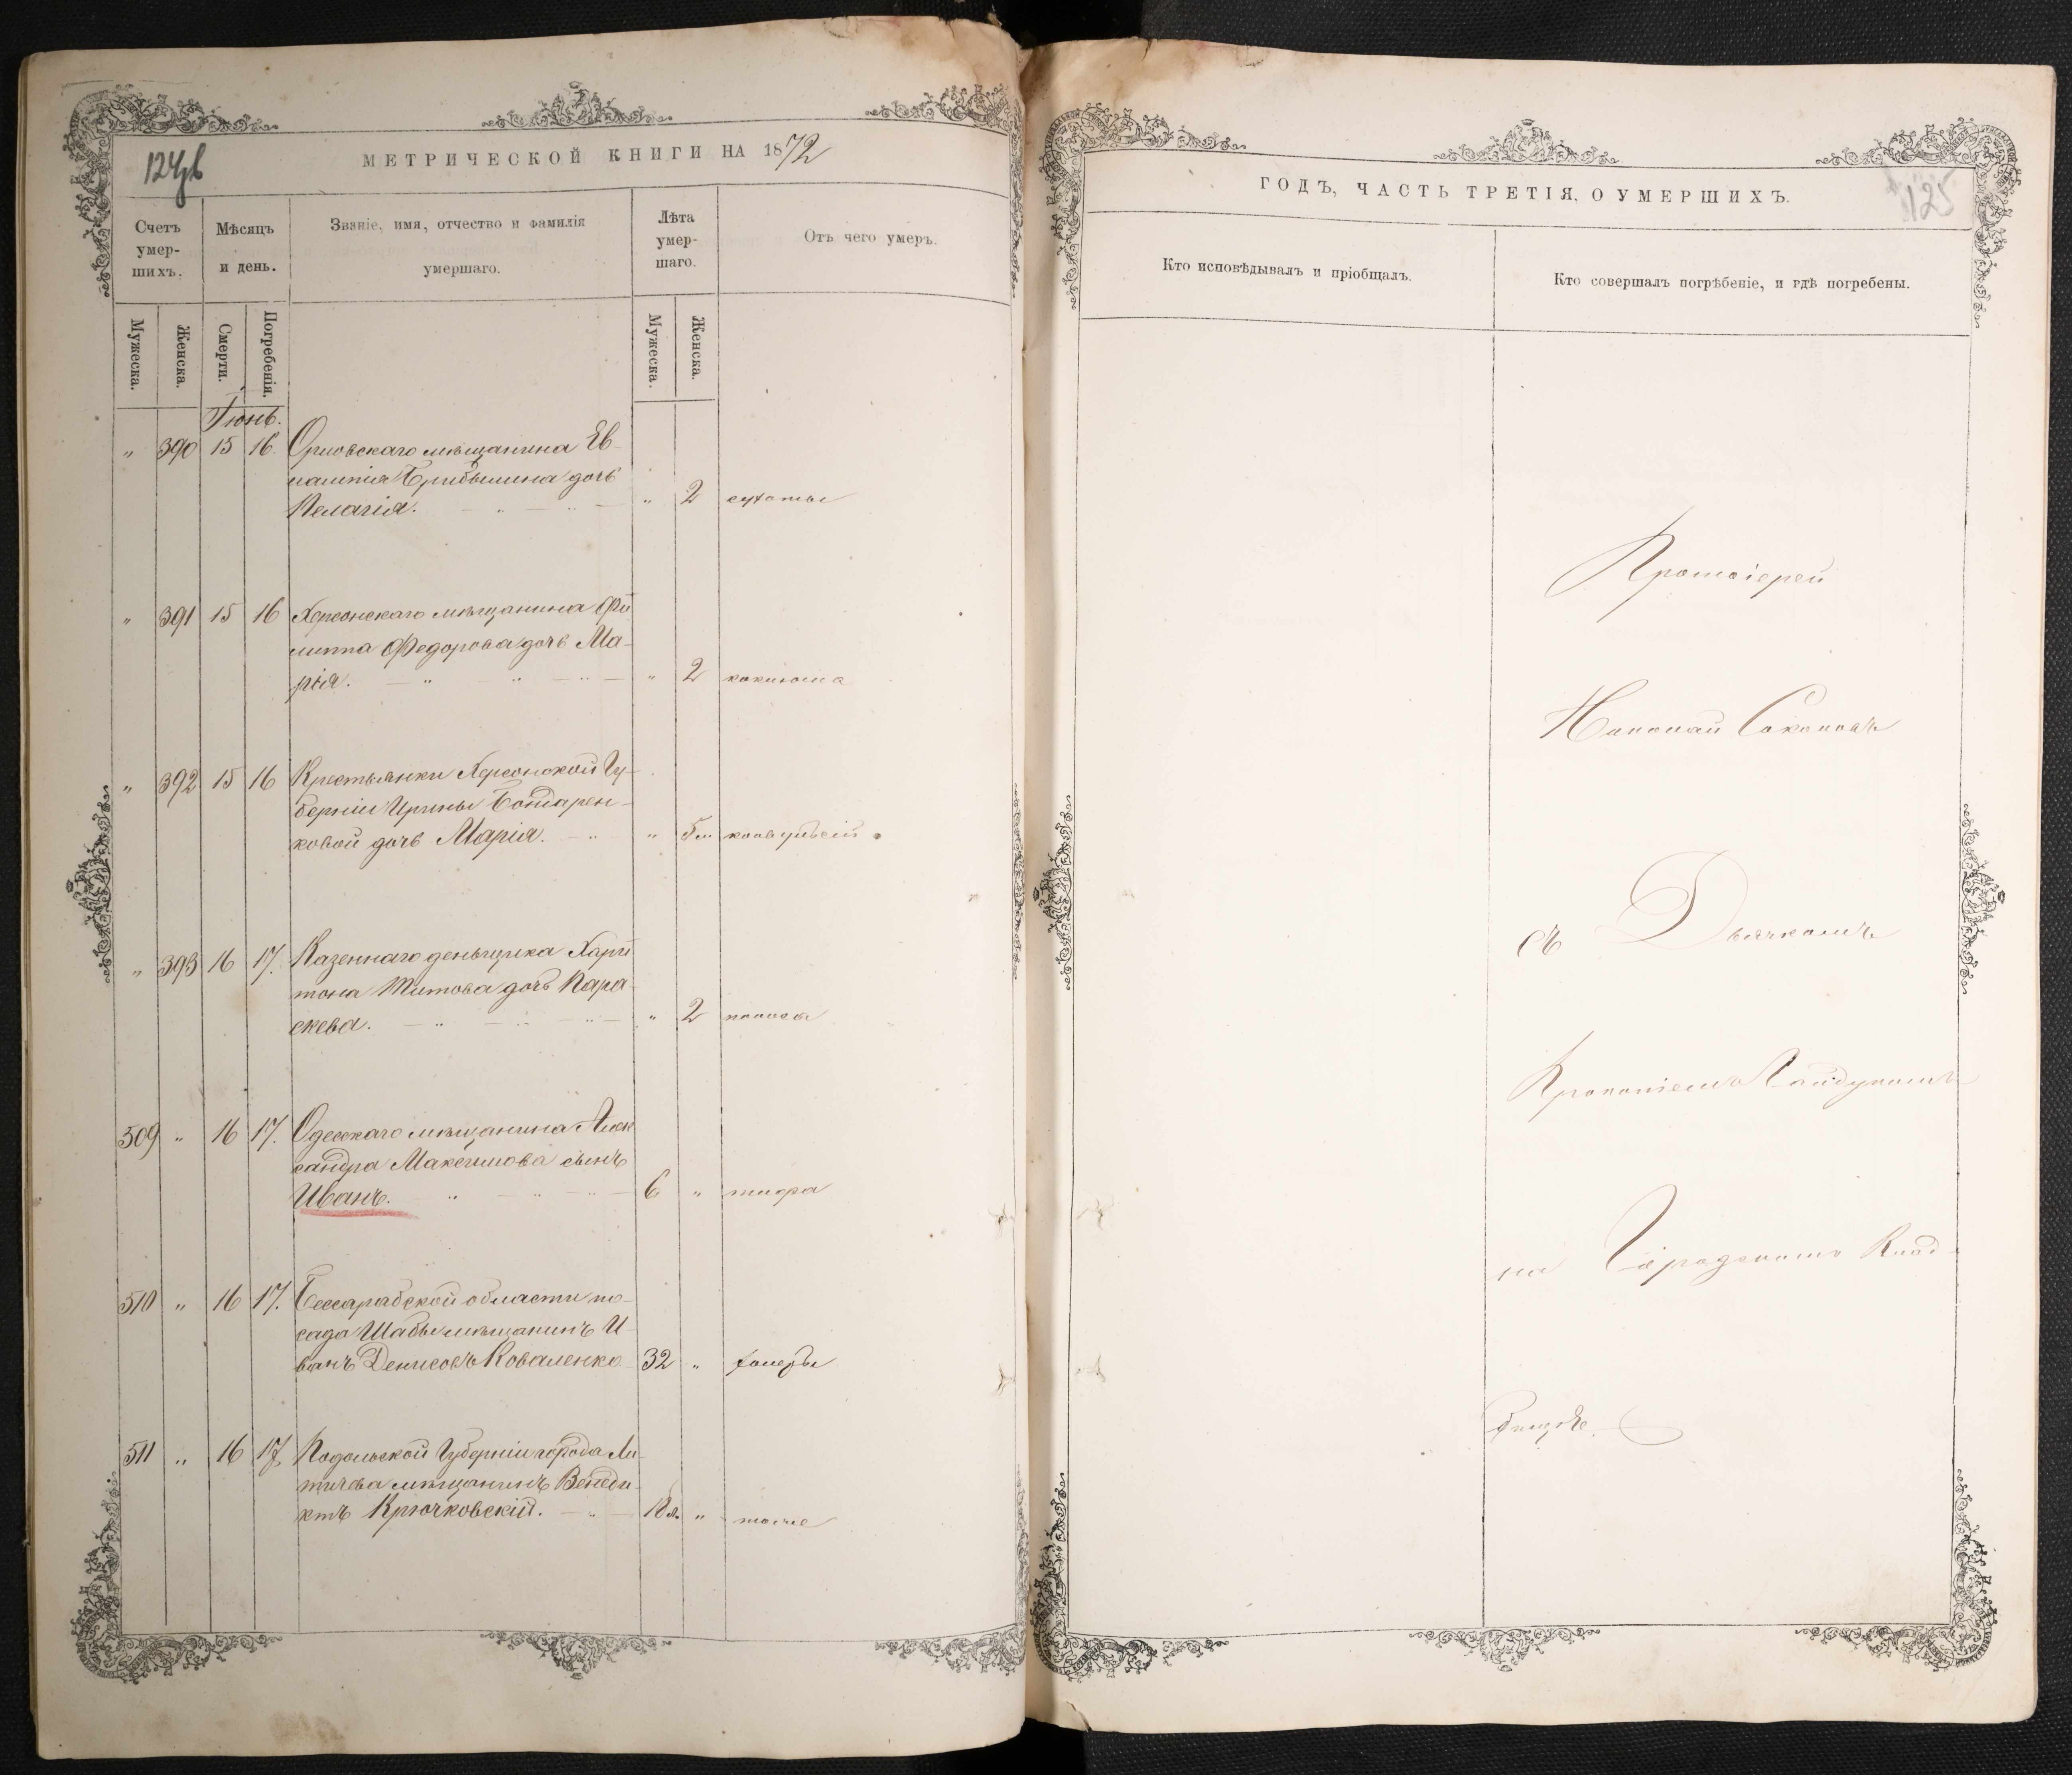 124об
МЕТРИЧЕСКОЙ КНИГИ НА 1872
Счетъ умершихъ.
Мѣсяцъ и день.
Званіе, имя, отчество и фамилія умершаго.
Лѣта умершаго.
Отъ чего умеръ.
Мужеска.
Женска.
Смерти.
Погребенія.
Мужеска.
Женска.
Іюнь.
" 390 15 16 Орловскаго мѣщанина Ев-
дочь
Пелагія. " 2 сухоты
" 391 15 16 Херсонскаго мѣщанина Фи
липпа Федорова дочь Ма-
рія. " 2 коклюша
" 392 15 16 Крестьянки Херсонской Гу-
берніи Ирины Бондарен-
ковой дочь Марія. " 5 м конвульсій
" 393 16 17. Казеннаго деньщика Хари
тона Титова дочь Пара-
скева. " 2 поноса
509 " 16 17. Одесскаго мѣщанина Алек
сандра Максимова сынъ
Иванъ. 6 " тифа
510 " 16 17. Бессарабской области по-
сада Шабы мѣщанинъ И-
ванъ Денисовъ Коваленко 32 " холеры
511 " 16 17. Подольской Губерніи города Ле-
тичева мѣщанинъ Венеди-
ктъ Крючковскій. " тоже
125
ГОДЪ, ЧАСТЬ ТРЕТІЯ, О УМЕРШИХЪ.
Кто исповѣдывалъ и пріобщалъ.
Кто совершалъ погрѣбеніе, и гдѣ погребены.
Протоіерей
Николай Соколовъ
съ Дьячкомъ
Прокопіемъ Гайдукомъ
на Городскомъ Клад-
бищѣ.